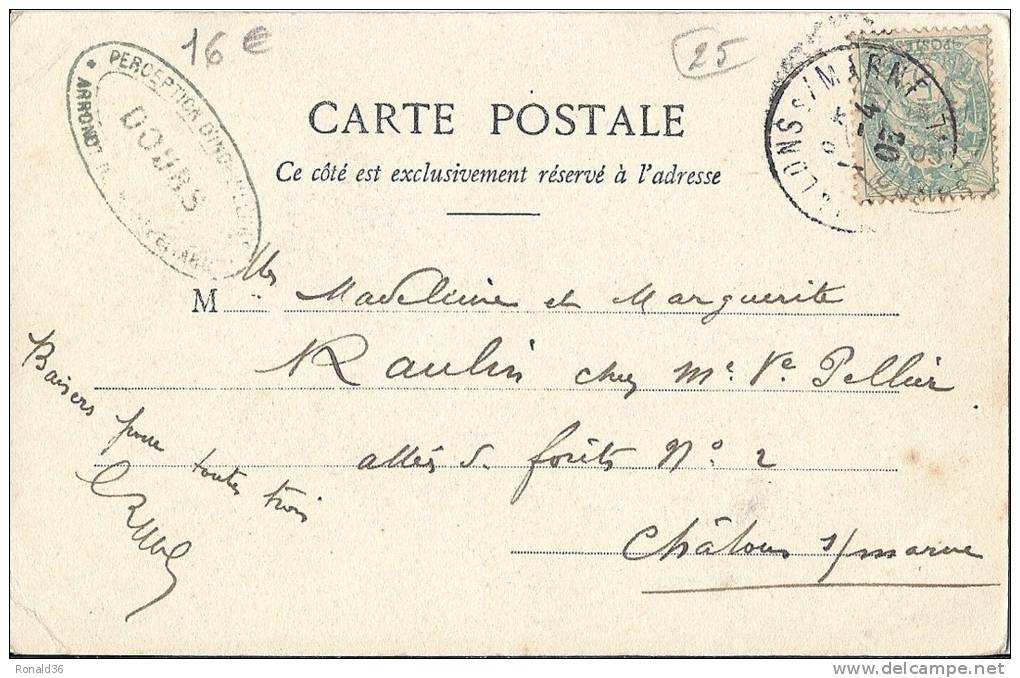 16 €
25
* PERCEPTION D'ING
DOUBS
ARRONDT
CHALONS S/MARNE
4
03
POSTES
CARTE POSTALE
Ce côté est exclusivement réservé à l'adresse
M lles Madeleine et Marguerite
Raulin chez Me Ve Pellier
allés d. forêts No 2
Châlons s/marne
Baisers pour toutes trois
Ronald36
delcampe.net